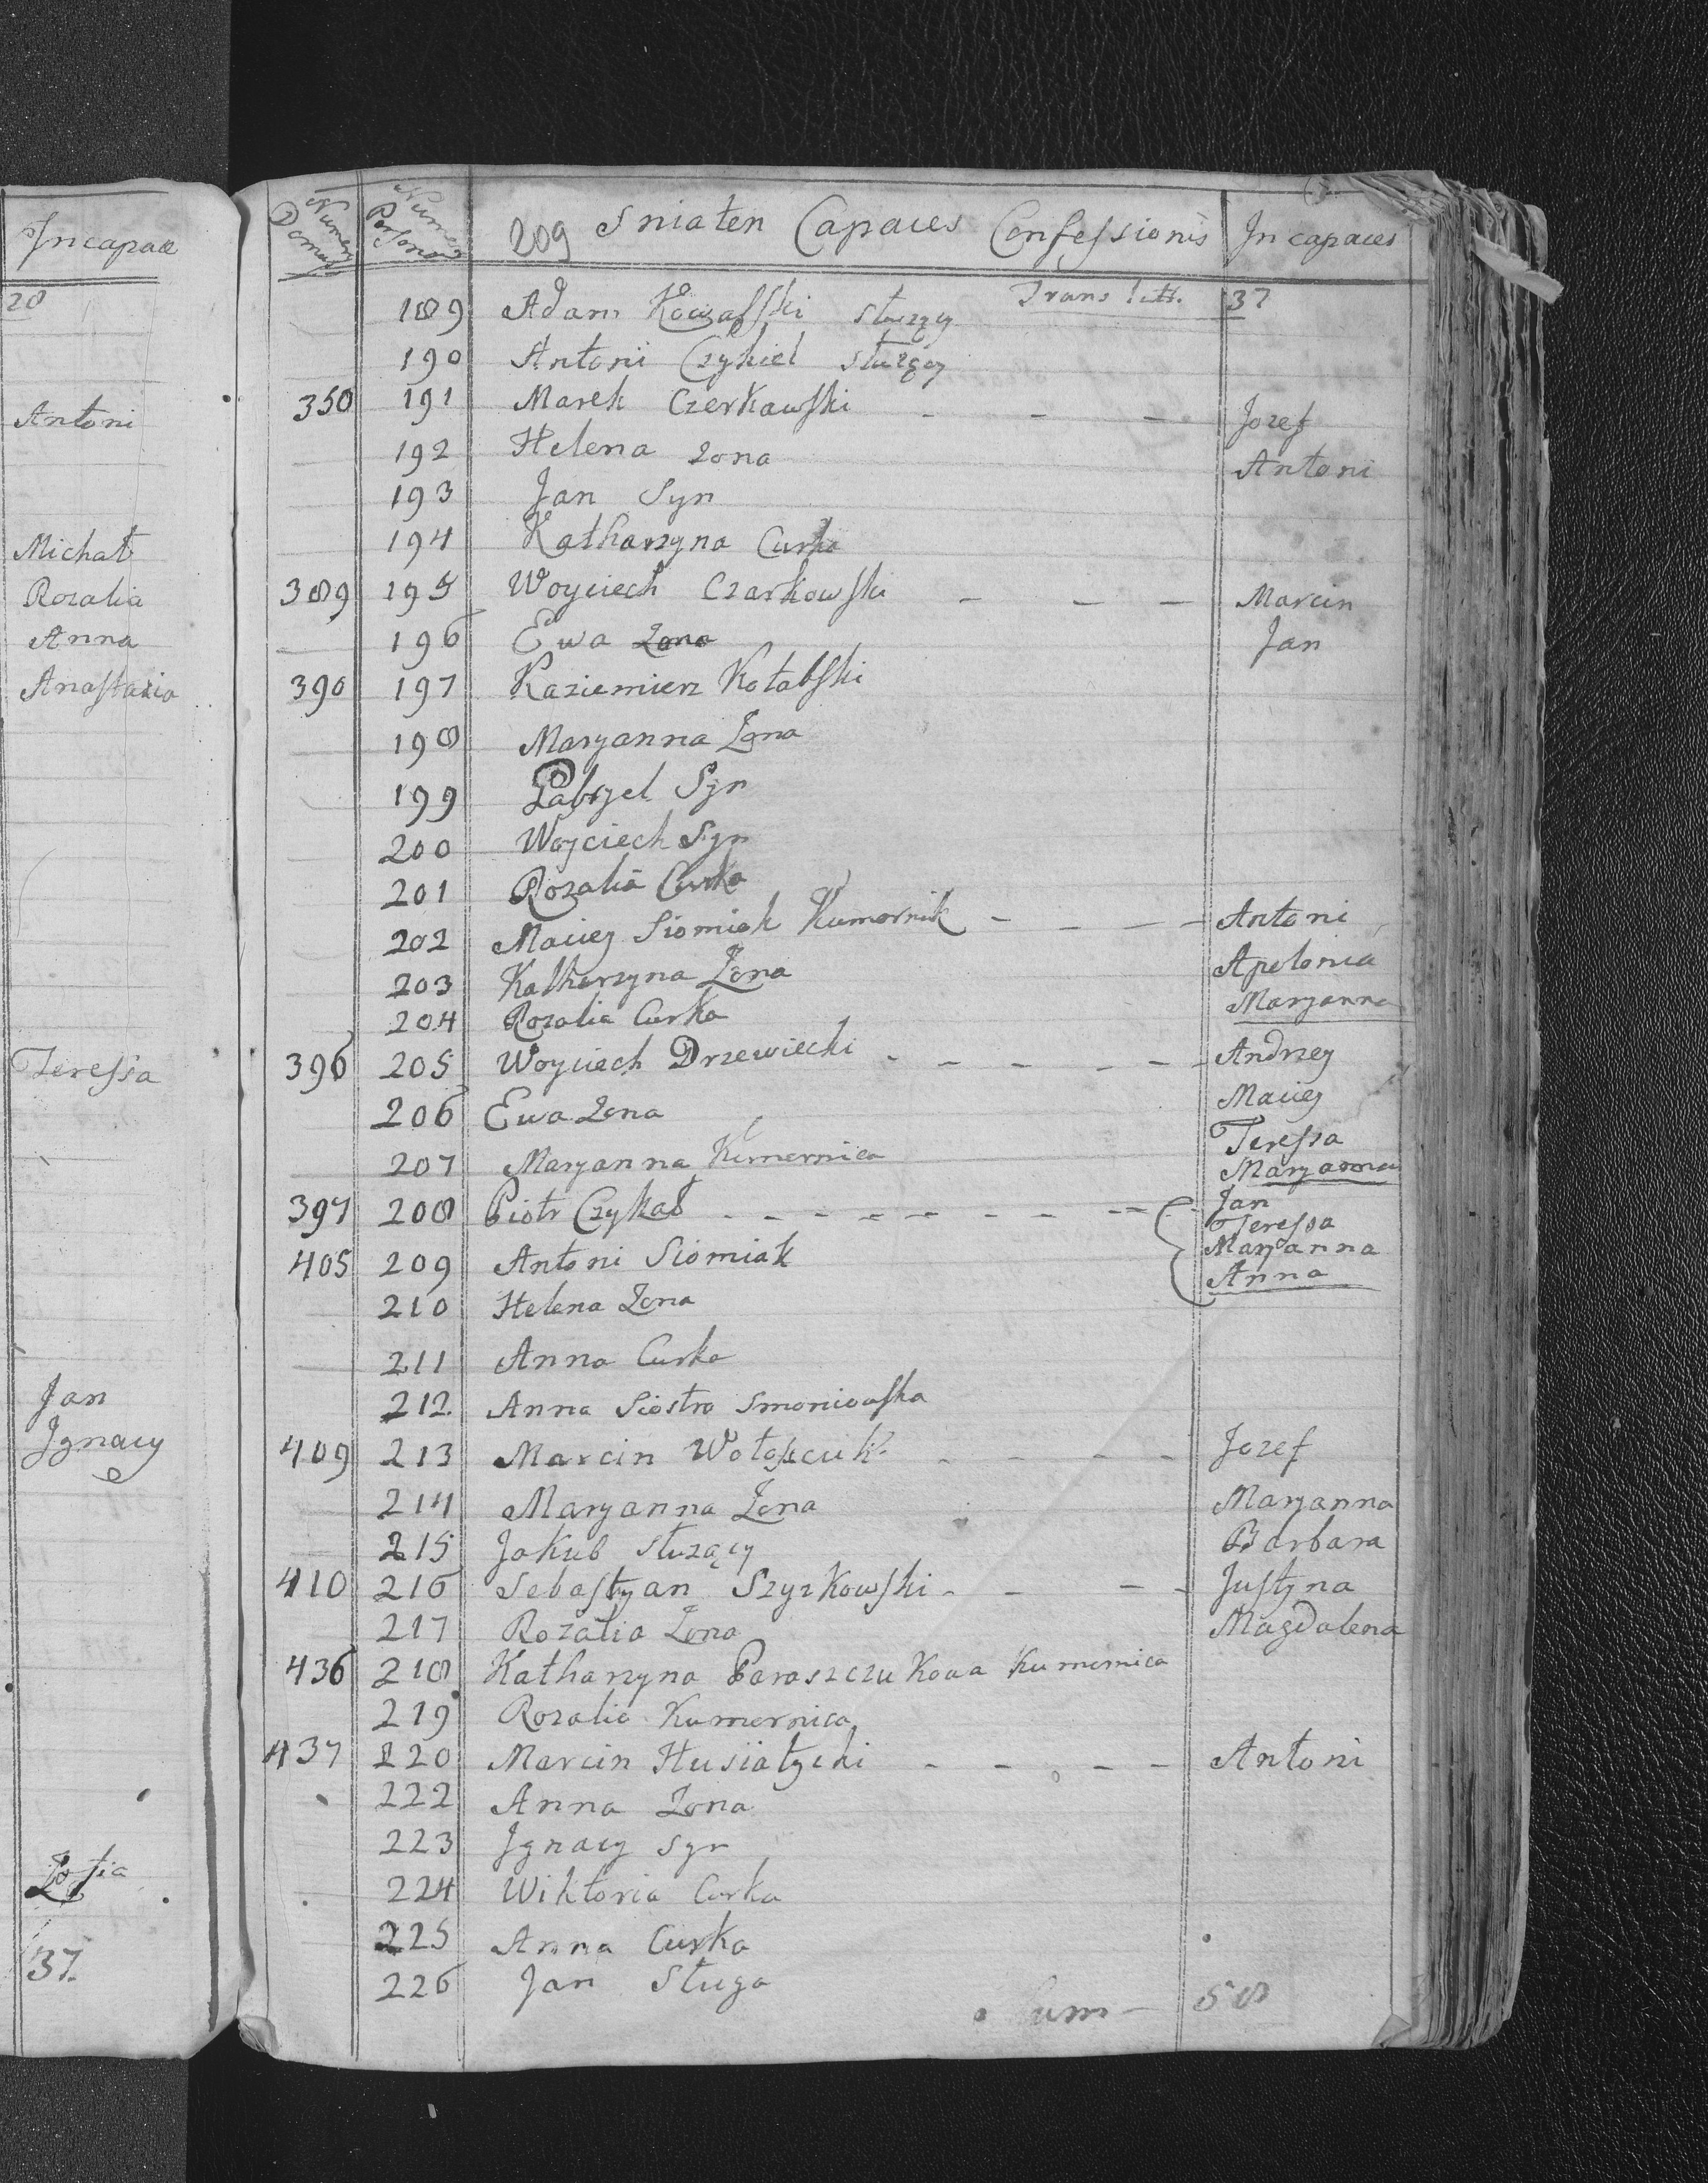 Incapaces
20
Antoni
Michał
Rozalia
Anna
Anastazia
Teressa
Jan
Ignacy
Zofia
37.
Numerus Domus
Numerus Personar
209 Sniaten Capaces Confessionis
Incapaces
Trans lat. 37
189 Adam Kowalski służący
190 Antoni Czykiel służący
350 191 Marek Czerkawski - - - Jozef
192 Helena Zona Antoni
193 Jan Syn
194 Katharzyna Curka
389 195 Woyciech Czarkowski - - - Marcin
196 Ewa Zona Jan
390 197 Kaziemierz Kotabski
198 Maryanna Zona
199 Gabryel Syn
200 Woyciech Syn
201 Rozalia Curka
202 Maciey Siomiak Kumornik - - - - Antoni
203 Katharzyna Zona Apolonia
204 Rozalia Curka Maryanna
396 205 Woyciech Drzewiecki - - - - - Andrzey
206 Ewa Zona Maciey
Teressa
207 Maryanna Kumornica Maryanna
397 208 Piotr Czykał - - - - - - - - - Jan
Teressa
Maryanna
405 209 Antoni Siomiak Anna
210 Helena Zona
211 Anna Curka
212. Anna Siostra Smoniowska
409 213 Marcin - - - - Jozef
214 Maryanna Zona Maryanna
215 Jakub służący Barbara
410 216 Sebastyan Szyzkowski - - - - Justyna
217 Rozalia Zona Magdalena
436 218 Katharzyna Paraszczukowa Kumornica
219 Rozalia Kumornica
437 220 Marcin Husiatycki - - - - Antoni
222 Anna Zona
223 Ignacy Syn
224 Wiktoria Curka
225 Anna Curka
226 Jan Sługa
Sum - 58